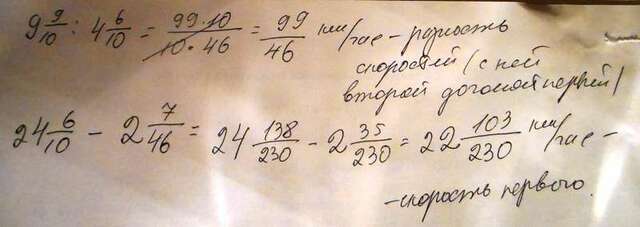 9 9/10 : 4 6/10 = 99·10/10·46 = 99/46 км/час - разность
скоростей (с ней
второй догонял первый)
24 6/10 - 2 7/46 = 24 138/230 - 2 35/230 = 22 103/230 км/час -
-скорость первого.